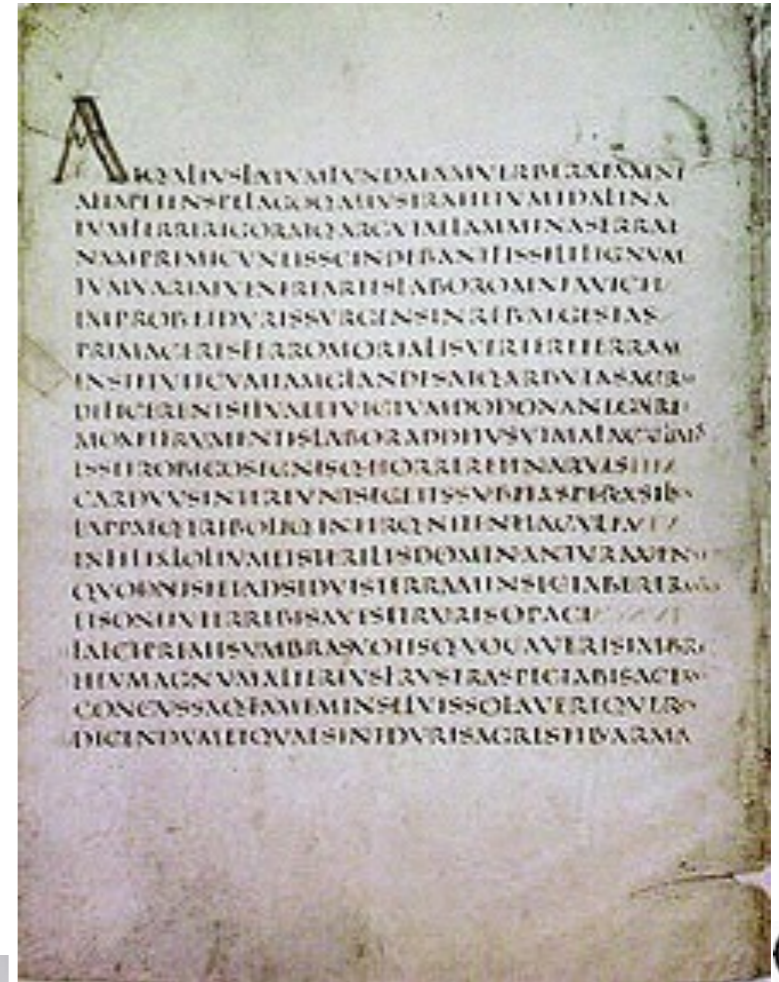 ATQALIVSLATVMFVNDAIAMVERBERATAMNE
ALTAPETENSPELAGOQALIVSTRAHITVMIDALINA
TVMFERRIRIGORATQARGVTAELAMMINASERRAE
NAMPRIMICVNEISSCINDEBANTFISSILELIGNVM
TVMVARIAEVENEREARTESLABOROMNIAVICIT
IMPROBETDVRISSVRGENSINREBVSEGESTAS
PRIMACERESFERROMORTALISVERTERETERRAM
INSTITVITCVMIAMGLANDESATQARBVTASACRAE
DEFICERENTSILVAEETVICTVMDODONANEGARE
MOXETFRVMENTISLABORADDITVSVTMALACVLMOS
ESSETROBIGOSEGNISQHORRERETINARVIS
CARDVVSINTEREVNTSEGETESSVBITASPERASILV
LAPPAEQTRIBOLIQINTERQNITENTIACVLTA
INFELIXLOLIVMETSTERILESDOMINANTVRAVEN
QVODNISIETADSIDVISTERRAMINSECTABERER
ETSONITVTERREBISAVESETRVRISOPACI
FALCEPREMESVMBRASVOTISQVOCAVERISIMBR
HEVMAGNVMALTERIVSFRVSTRASPECTABISACER
CONCVSSAQFAMEMINSILVISSOLAVEREQVER
DICENDVMETQVAESINTDVRISAGRESTIBVARMA